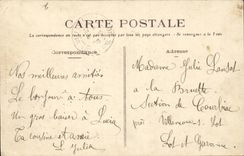 CARTE POSTALE
La correspondance au recto n'est pas acceptée par tous les pays étrangers. - Se renseigner à la Poste
Correspondance
Adresse
Nos meilleures amitiés
Le bonjour à tous
Un gros baiser à Lucia
Ta cousine et amie
Julia
Madame Julie
a la
Section de
par
Lot et Garonne